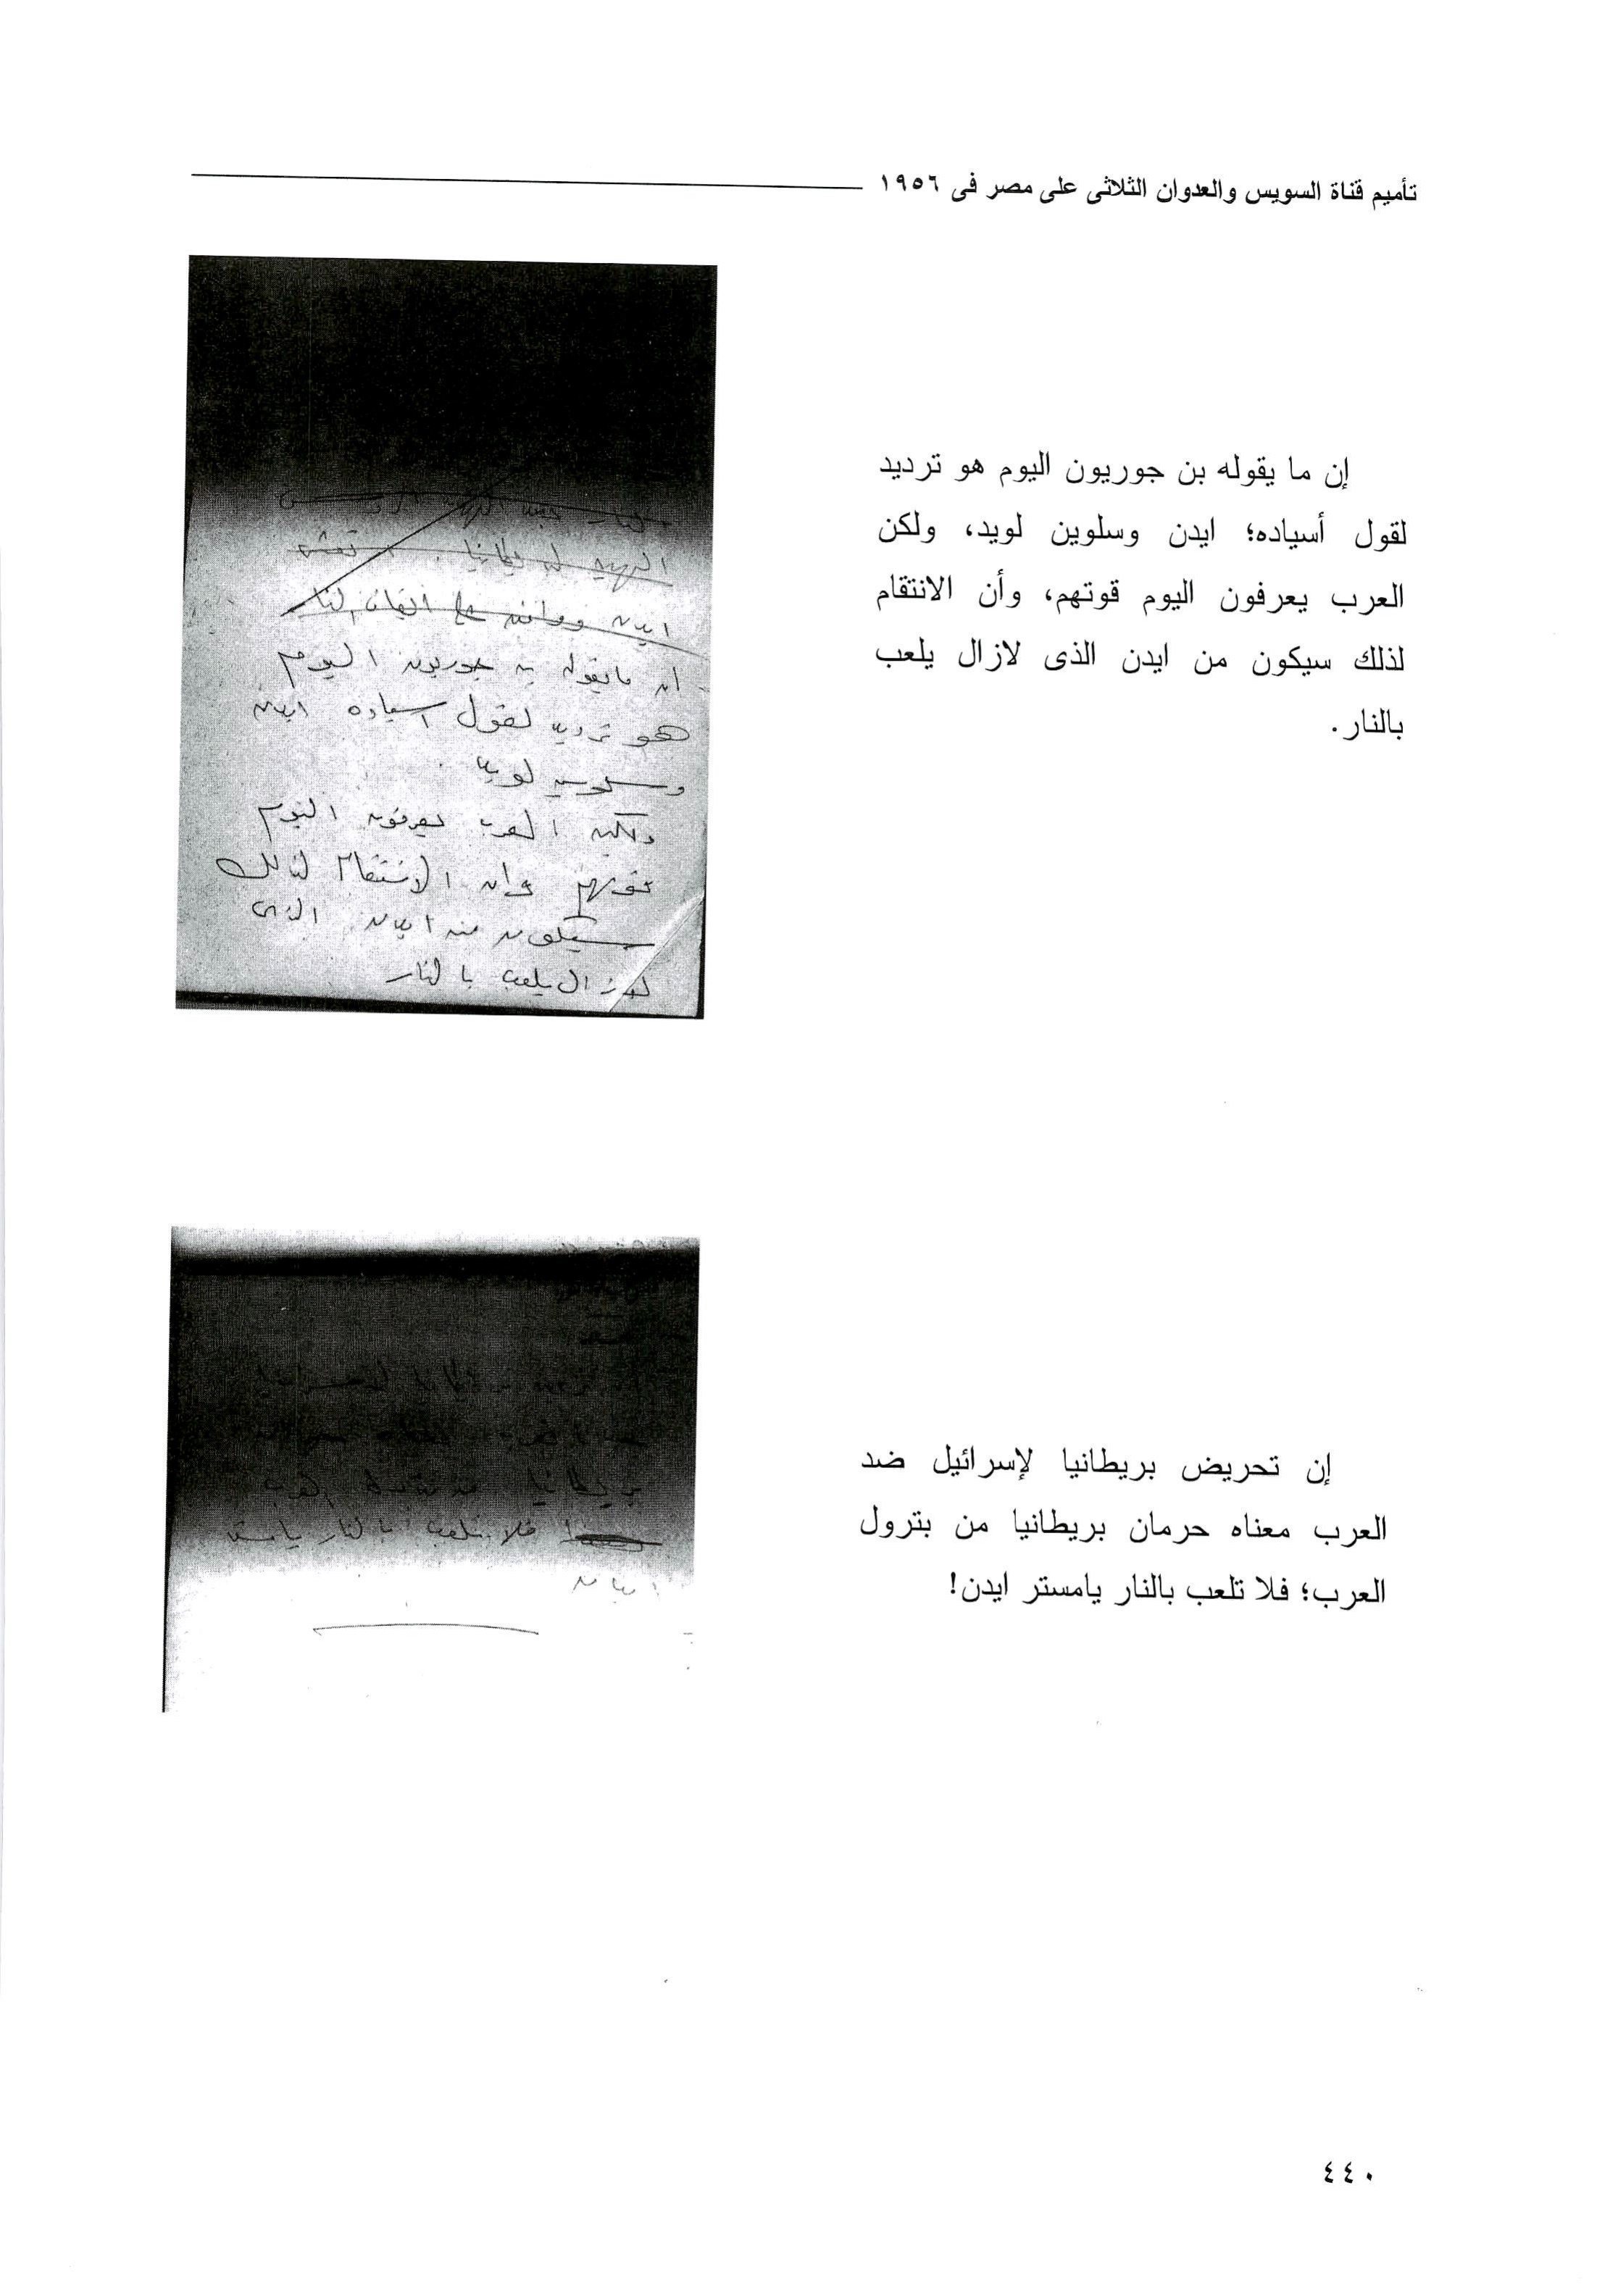 تأميم قناة السويس والعدوان الثلاثى على مصر فى ١٩٥٦
إن ما يقوله بن جوريون اليوم هو ترديد
لقول أسياده؛ ايدن وسلوين لويد، ولكن
العرب يعرفون اليوم قوتهم، وأن الانتقام
لذلك سيكون من ايدن الذى لازال يلعب
بالنار.
ايدن
ان ما يقوله بن جوريون اليوم
هو ترديد لقول اسياده ايدن
وسلوين لويد
ولكن العرب يعرفون اليوم
قوتهم وان الانتقام لذلك
سيكون من ايدن الذى
لازال يلعب بالنار
إن تحريض بريطانيا لإسرائيل ضد
العرب معناه حرمان بريطانيا من بترول
العرب؛ فلا تلعب بالنار يامستر ايدن!
بريطانيا من العرب
فلا تلعب بالنار يامستر
ايدن
٤٤٠